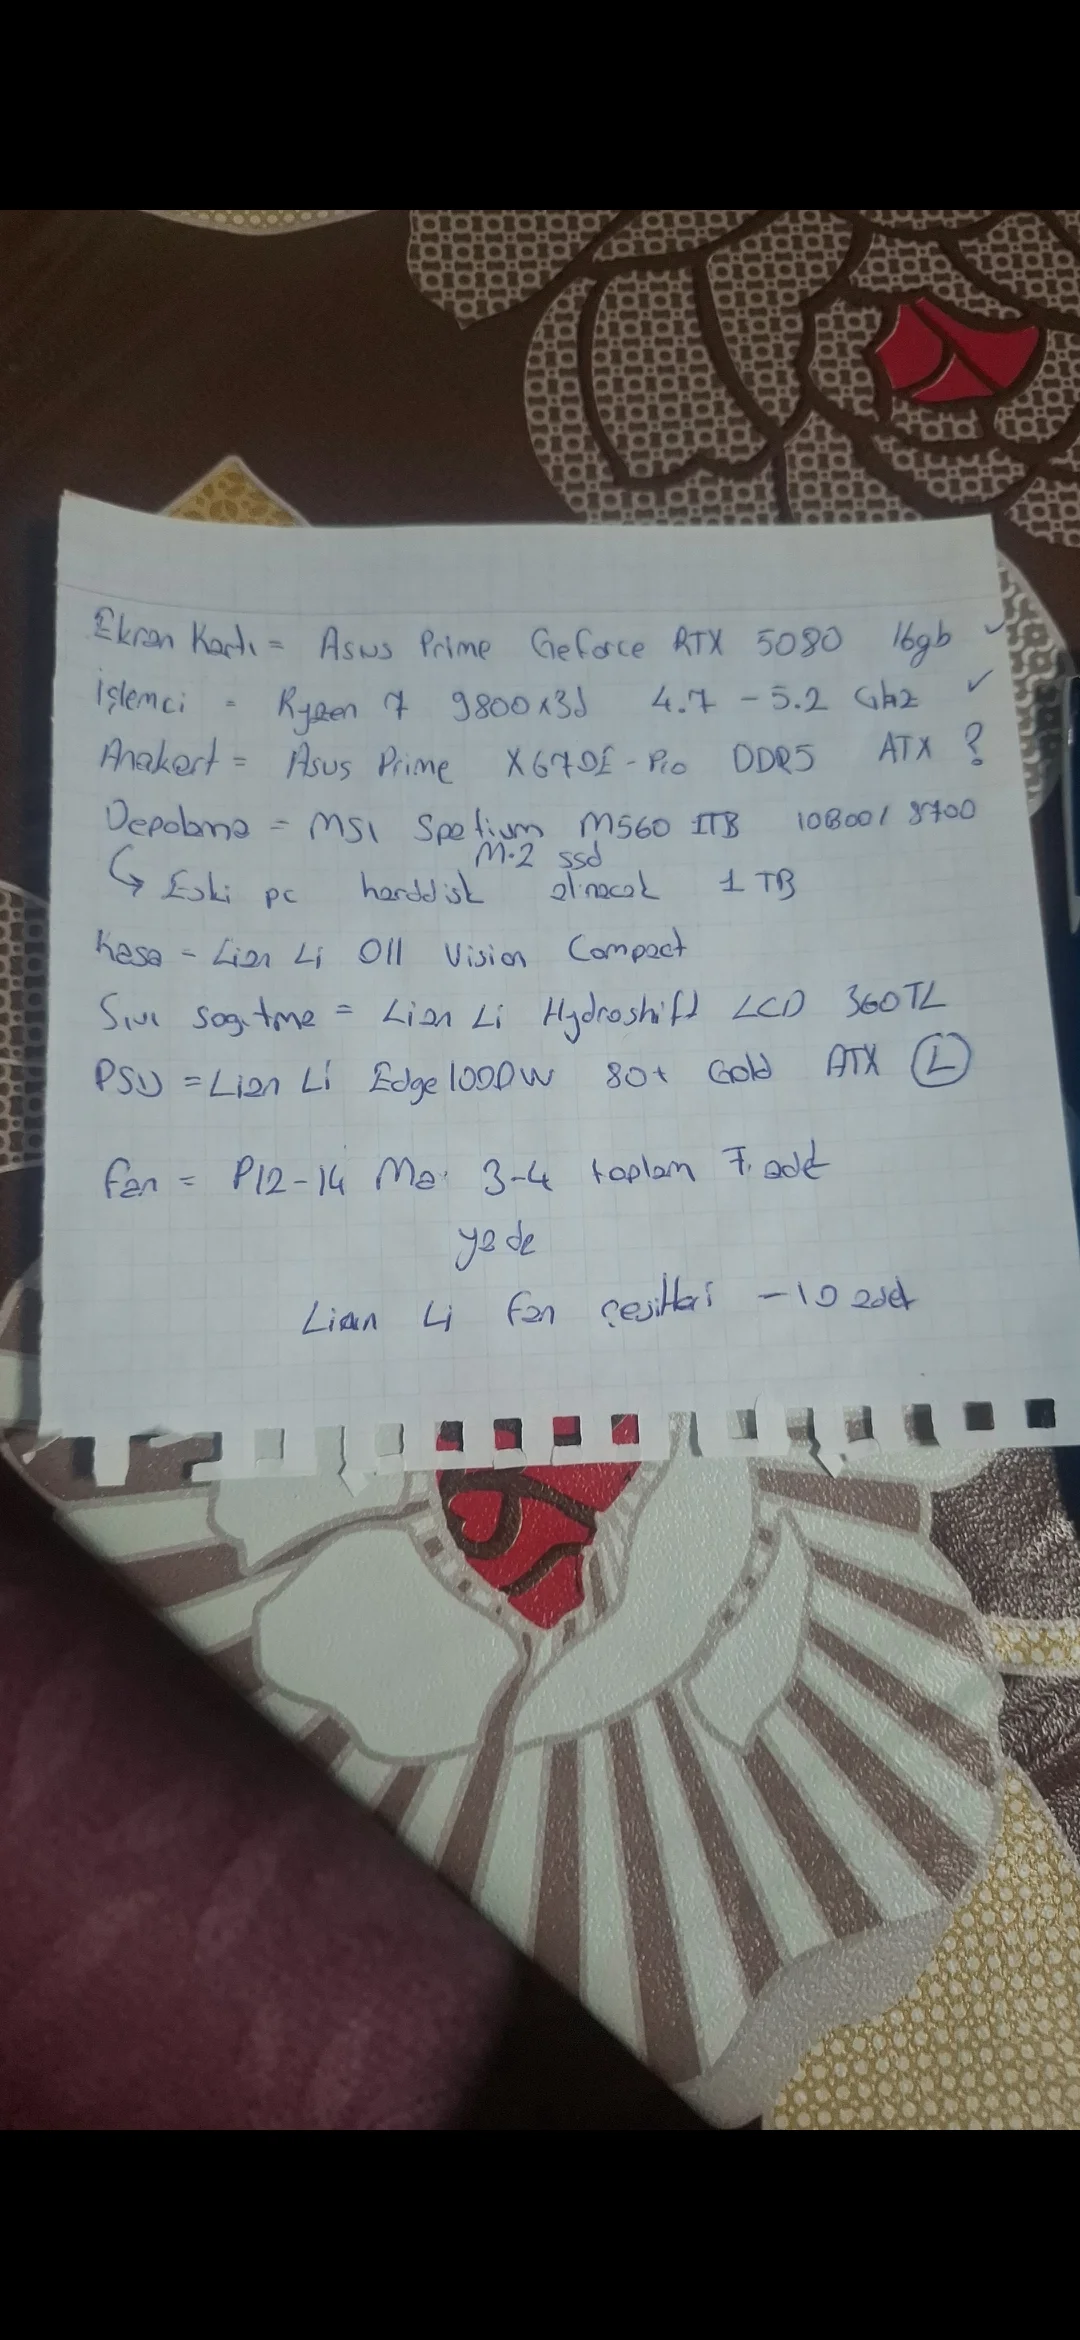 Ekran Kartı = Asus Prime Geforce RTX 5080 16gb ✓
İşlemci = Ryzen 7 9800x3d 4.7 - 5.2 Ghz ✓
Anakart = Asus Prime X670E-Pro DDR5 ATX ?
Depolama = MSI Spatium M560 1TB 10800/8700
M.2 ssd
↳ Eski pc harddisk alınacak 1 TB
Kasa = Lian Li O11 Vision Compact
Sıvı sogıtme = Lian Li Hydroshift LCD 360TL
PSU = Lian Li Edge 1000W 80+ Gold ATX (L)
Fan = P12-14 3-4 toplam 7 adet
yade
Lian Li fan çeşitleri - 10 adet